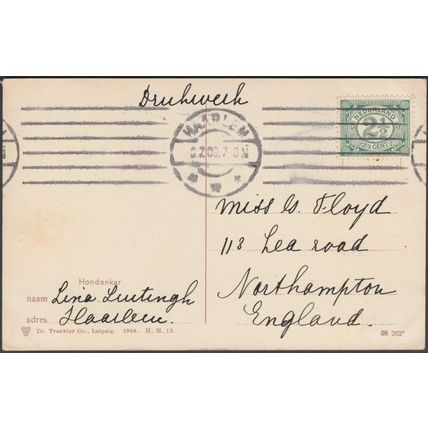 Drukwerk
HAARLEM
NEDERLAND
2½
CENT
Miss G. Floyd
113 Lea road
Northampton
England.
Hondenkar
naam Lina Luitingh
adres Haarlem.
Dr. Trenkler Co., Leipzig. 1908. H. M. 13.
08 202*